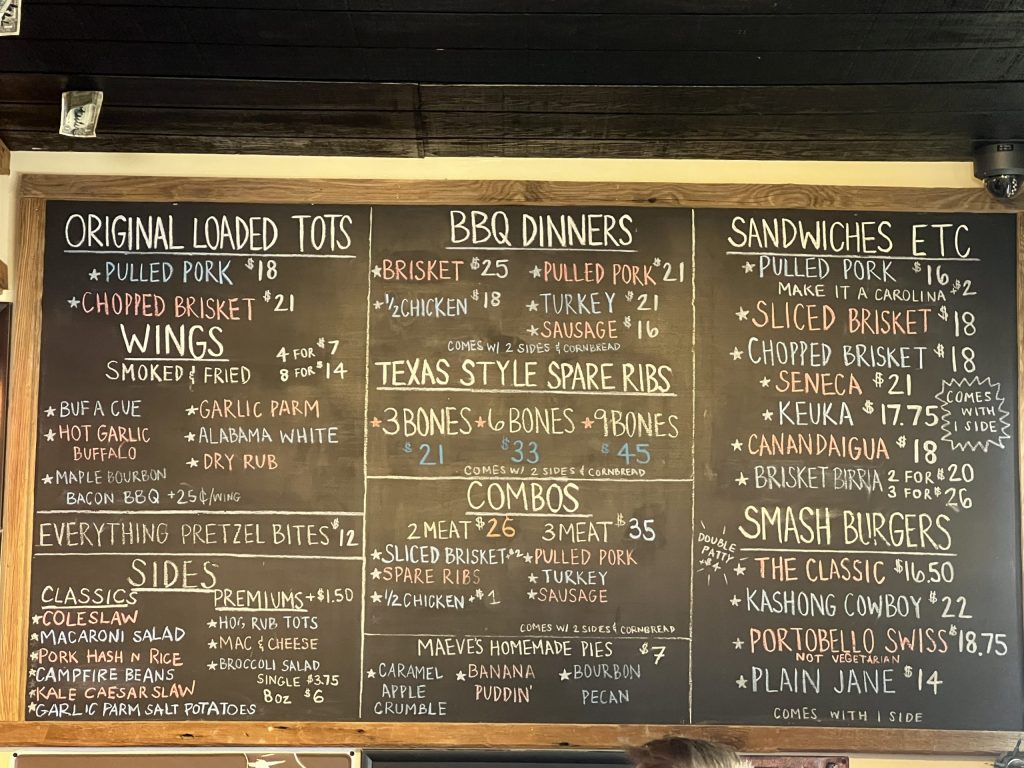 ORIGINAL LOADED TOTS
★PULLED PORK $18
★CHOPPED BRISKET $21
WINGS
SMOKED & FRIED
4 FOR $7
8 FOR $14
★BUF A CUE
★HOT GARLIC
BUFFALO
★MAPLE BOURBON
BACON BBQ +25¢/WING
★GARLIC PARM
★ALABAMA WHITE
★DRY RUB
EVERYTHING PRETZEL BITES $12
SIDES
CLASSICS
★COLESLAW
★MACARONI SALAD
★PORK HASH N RICE
★CAMPFIRE BEANS
★KALE CAESAR SLAW
★GARLIC PARM SALT POTATOES
PREMIUMS +$1.50
★HOG RUB TOTS
★MAC & CHEESE
★BROCCOLI SALAD
SINGLE $3.75
8oz $6
BBQ DINNERS
★BRISKET $25 ★PULLED PORK $21
★½ CHICKEN $18 ★TURKEY $21
★SAUSAGE $16
COMES W/ 2 SIDES & CORNBREAD
TEXAS STYLE SPARE RIBS
★3 BONES ★6 BONES ★9 BONES
$21 $33 $45
COMES W/ 2 SIDES & CORNBREAD
COMBOS
2 MEAT $26 3 MEAT $35
★SLICED BRISKET +$2 ★PULLED PORK
★SPARE RIBS ★TURKEY
★½ CHICKEN +$1 ★SAUSAGE
COMES W/ 2 SIDES & CORNBREAD
MAEVE'S HOMEMADE PIES $7
★CARAMEL
APPLE
CRUMBLE
★BANANA
PUDDIN'
★BOURBON
PECAN
SANDWICHES ETC
★PULLED PORK $16
MAKE IT A CAROLINA +$2
★SLICED BRISKET $18
★CHOPPED BRISKET $18
★SENECA $21
★KEUKA $17.75
★CANANDAIGUA $18
★BRISKET BIRRIA 2 FOR $20
3 FOR $26
COMES
WITH
1 SIDE
SMASH BURGERS
DOUBLE
PATTY
+$4
★THE CLASSIC $16.50
★KASHONG COWBOY $22
★PORTOBELLO SWISS $18.75
NOT VEGETARIAN
★PLAIN JANE $14
COMES WITH 1 SIDE